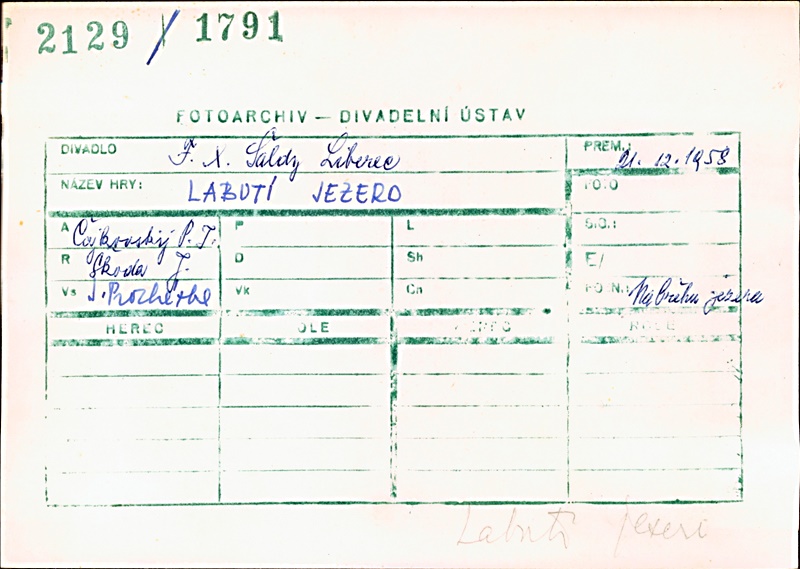 2129 / 1791
FOTOARCHIV — DIVADELNÍ ÚSTAV
DIVADLO F. X. Šaldy Liberec PREM.: 21. 12. 1958
NÁZEV HRY: LABUTÍ JEZERO FOTO
A Čajkovský P. I. P L SIG.:
R Škoda J. D Sh E/
Vs J. Vk Cn POZN.: Na břehu jezera
HEREC OLE HEREC ROLE
Labutí jezero